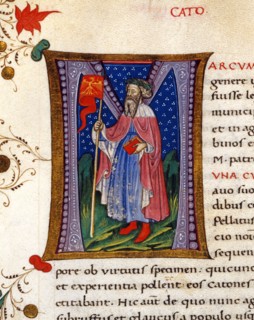 CATO.
ARCVM
genere
fuisse le
munici
et in ag
binos e
M. patre
VNA CV
auo suo
dibus co
Pellatus
cio nou
sequen
pore ob uirtutis specimen: quicunq
et experientia pollent: eos catones
citabant. Hic aut de quo nunc ag